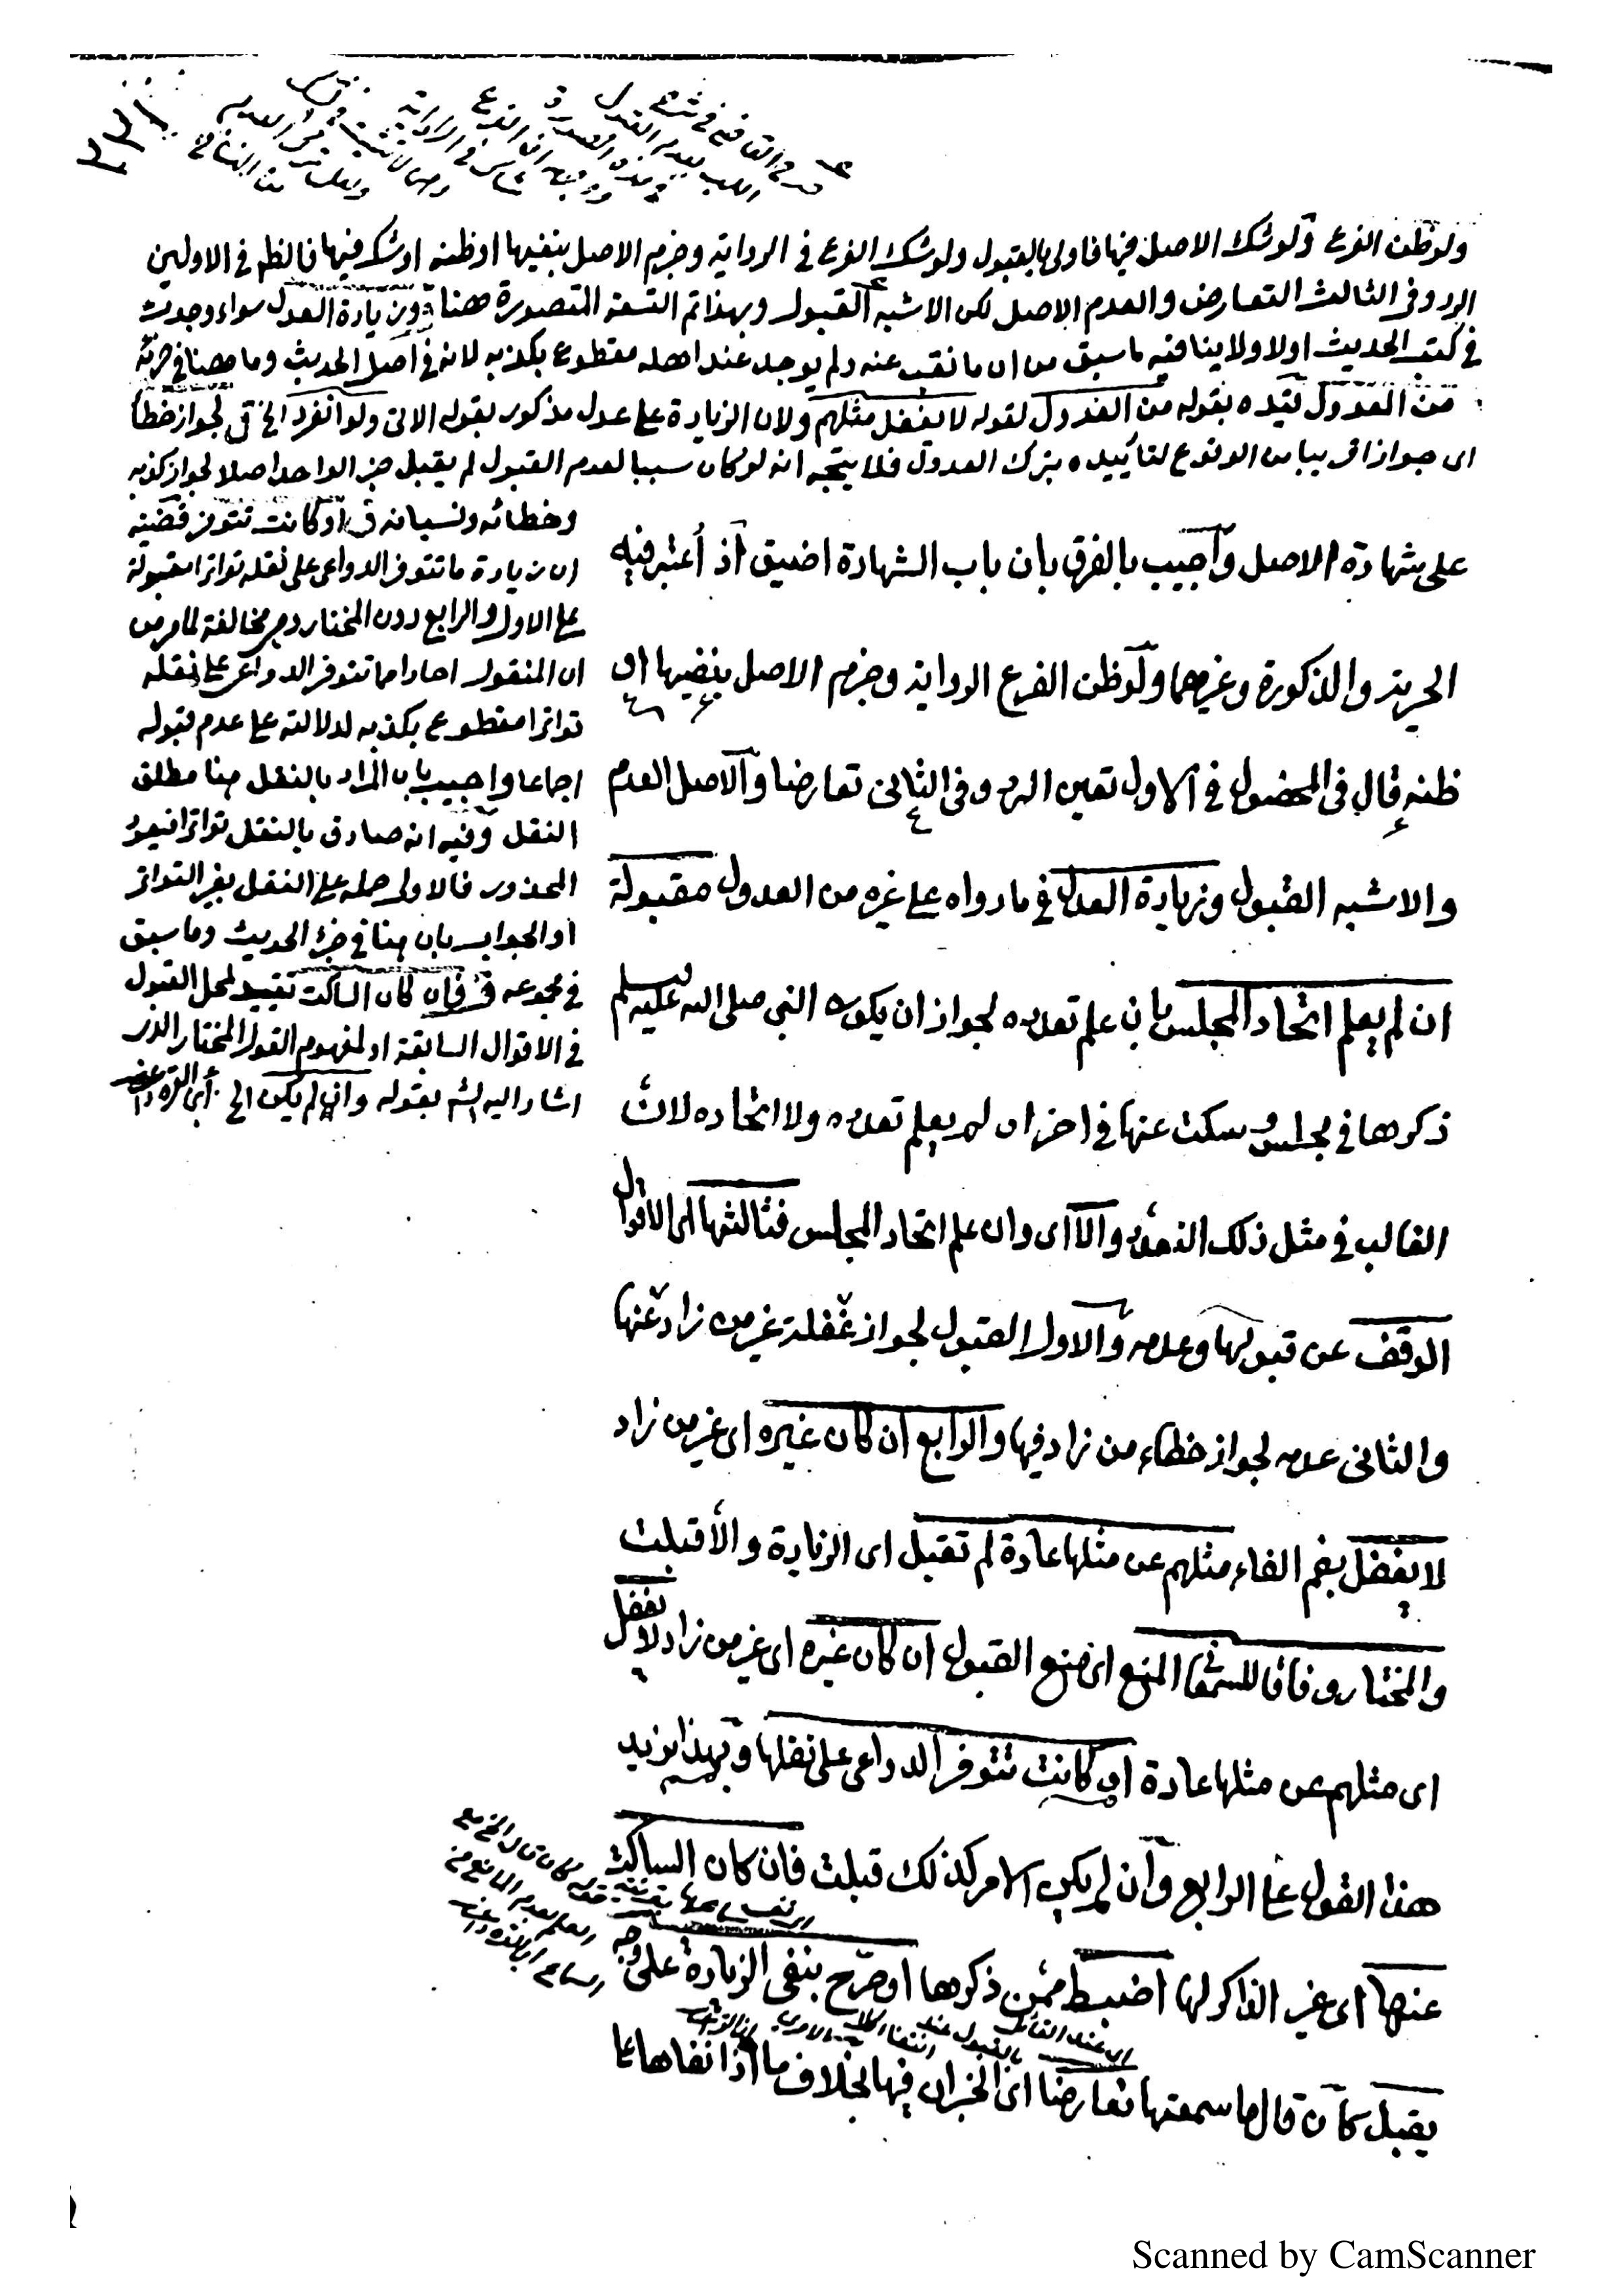 ٢٣١
ولو ظن الفرع ولو شك الاصل فيها فاولى بالقبول ولو شك الفرع في الرواية وجزم الاصل بنفيها او ظنه او شك فيها فالظم في الاولين
الرد وفي الثالث التعارض والعدم الاصل لكن الاشبه القبول وبهذا تم التسعة المتصورة هنا ق وزيادة العدل سواء وجدت
في كتب الحديث اولا ولا ينافيه ما سبق من ان ما نقب عنه ولم يوجد عند اهله مقطوع بكذبه لانه في اصل الحديث وما هصنا في جزئه
من العدول قيده بقوله من العدول لقوله لا يغفل مثلهم ولان الزيادة على عدل مذكور بقوله الاتي ولو انفرد الخ ق لجواز خطأ
اى جوازا قريبا من الوقوع لتأييده بترك العدول فلا يتجه انه لو كان سببا لعدم القبول لم يقبل خبر الواحد اصلا لجواز كذبه
وخطائه ونسيانه ق او كانت تتوفر قضيته
ان زيادة ما تتوفر الدواعى على نقله تواترا مقبولة
على الاول والرابع دون المختار وهو مخالفة لما مر من
ان المنقول احادا مما تتوفر الدواعى على نقله
تواترا مقطوع بكذبه لدلالته على عدم قبوله
اجماعا واجيب بان المراد بالنقل هنا مطلق
النقل وفيه انه صادق بالنقل تواترا فيعود
المحذور فالاولى حمله على النقل بغير التواتر
او الجواب بان هنا في جزء الحديث وما سبق
في مجموعه ق فان كان الساكت تقييد لمحل القبول
في الاقوال السابقة او لمفهوم القول المختار الذى
اشار اليه الشم بقوله وان لم يكن الخ
على شهادة الاصل واجيب بالفرق بان باب الشهادة اضيق اذ اعتبر فيه
الحرية والذكورة وغيرهما ولو ظن الفرع الرواية وجزم الاصل بنفيها او
ظنه قال في المحصول في الاول تعين الرد وفي الثانى تعارضا والاصل العدم
والاشبه القبول وزيادة العدل في ما رواه على غيره من العدول مقبولة
ان لم يعلم اتحاد المجلس بان علم تعدده لجواز ان يكون النبي صلى الله عليه وسلم
ذكرها في مجلس وسكت عنها في اخر او لم يعلم تعدده ولا اتحاده لان
الغالب في مثل ذلك التعدد والا اى وان علم اتحاد المجلس فثالثها اى الاقوال
الوقف عن قبولها وعدمه والاول القبول لجواز غفلة غير من زاد عنها
والثانى عدمه لجواز خطاء من زاد فيها والرابع ان كان غيره اى غير من زاد
لا يغفل بضم الفاء مثلهم عن مثلها عادة لم تقبل اى الزيادة والا قبلت
والمختار وفاقا للسمعانى المنع اى منع القبول ان كان غيره اى غير من زاد لا يغفل
اى مثلهم عن مثلها عادة او كانت تتوفر الدواعى على نقلها وبهذا يزيد
هذا القول على الرابع وان لم يكن الامر كذلك قبلت فان كان الساكت
عنها اى غير الذاكر لها اضبط ممن ذكرها او صرح بنفى الزيادة على وجه
يقبل كأن قال ما سمعتها تعارضا اى الخبران فيها بخلاف ما اذا نفاها على
Scanned by CamScanner